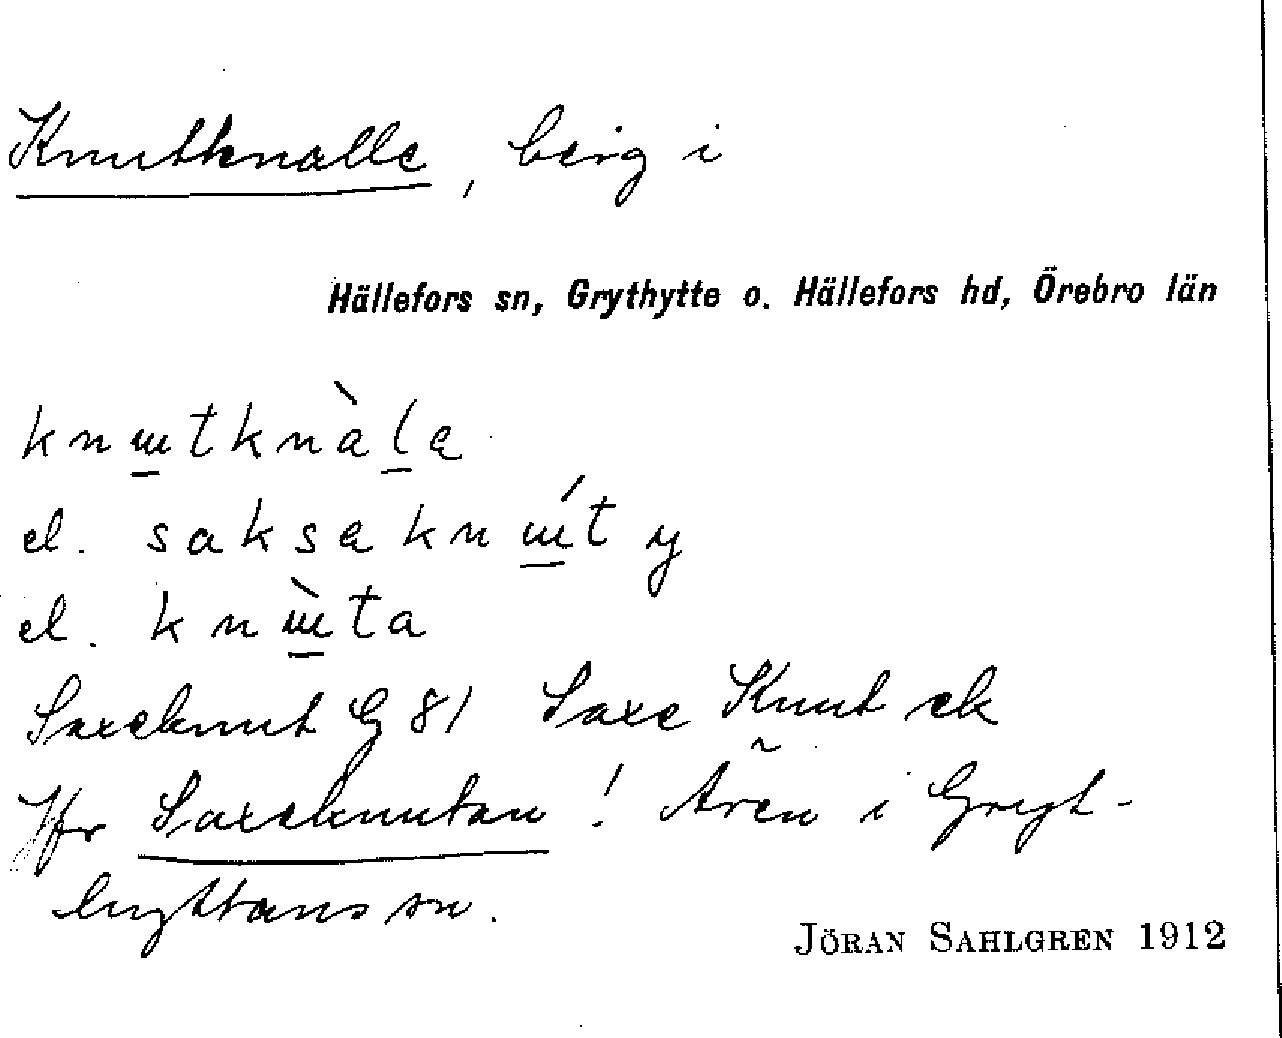 Knutknalle, berg i
Hällefors sn, Grythytte o. Hällefors hd, Örebro län
knɯtknàla
el. saksaknɯ́t y
el. knɯ̀ta
Saxeknut G 81 Saxe Knut ek
Jfr Saxeknutan! Ären i Gryt-
hyttans sn.
JÖRAN SAHLGREN 1912